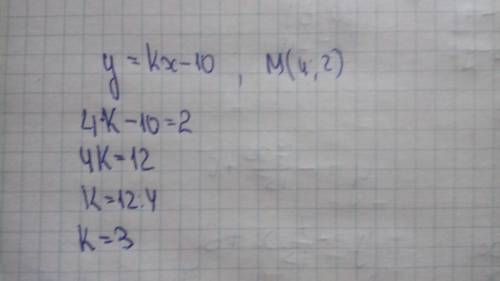 y = kx - 10, M(4; 2)
4k - 10 = 2
4k = 12
k = 12:4
k = 3